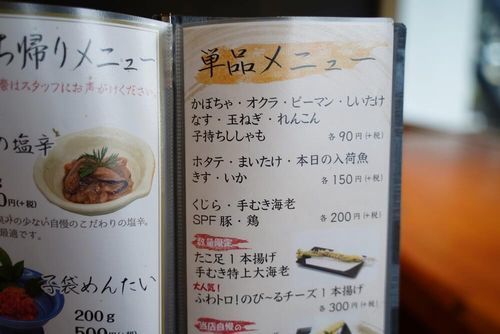 ち帰りメニュー
はスタッフにお声がけください
の塩辛
g
0円(+税)
みの少ない自慢のこだわりの塩辛。
最適です。
子袋めんたい
200g
500円(+税)
単品メニュー
かぼちゃ・オクラ・ピーマン・しいたけ
なす・玉ねぎ・れんこん
子持ちししゃも
各90円(+税)
ホタテ・まいたけ・本日の入荷魚
きす・いか
各150円(+税)
くじら・手むき海老
SPF豚・鶏
各200円(+税)
数量限定
たこ足1本揚げ
手むき特上大海老
大人気!
ふわトロ!のび〜るチーズ1本揚げ
各300円(+税)
当店自慢の